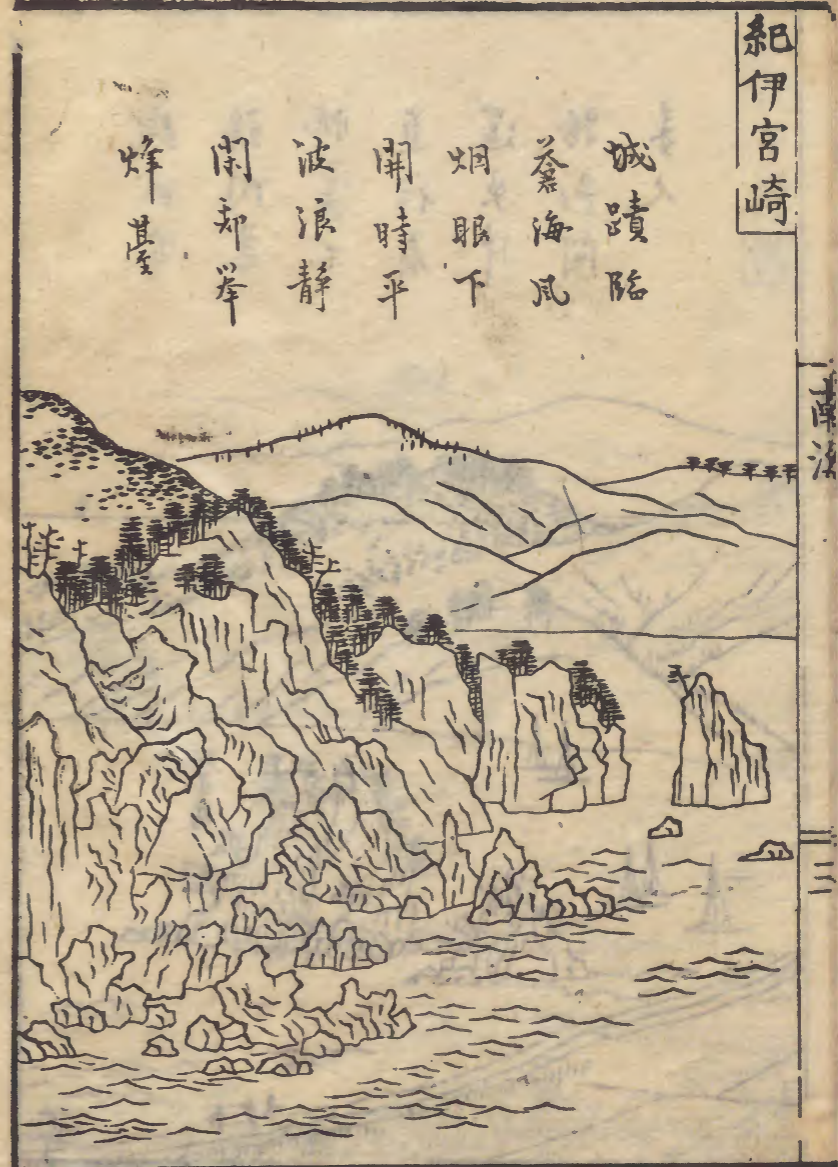 紀伊宮崎
城蹟臨
蒼海風
烟眼下
開時平
波浪静
閑却峯
烽臺
南
二